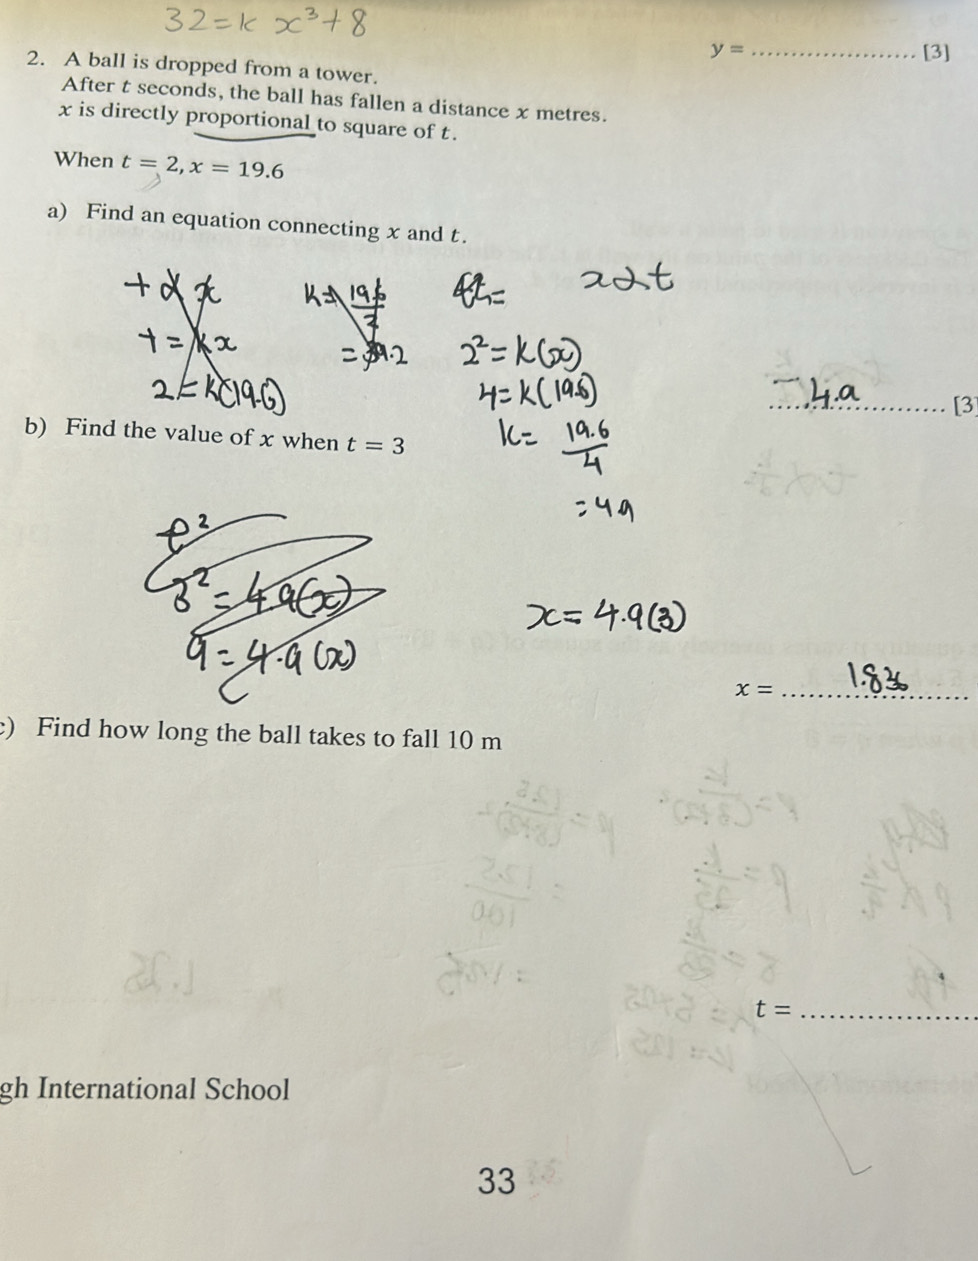 32 = k x³ + 8
y = .................... [3]
2. A ball is dropped from a tower.
After t seconds, the ball has fallen a distance x metres.
x is directly proportional to square of t.
When t = 2, x = 19.6
a) Find an equation connecting x and t.
t ∝ x
t = kx
2 = k(19.6)
k = 19.6/2
= 39.2
x ∝ t
2² = k(x)
4 = k(19.6)
k = 19.6/4
= 4.9
4.9 [3]
b) Find the value of x when t = 3
t²
3² = 4.9(x)
9 = 4.9(x)
x = 4.9(3)
x = 1.836
c) Find how long the ball takes to fall 10 m
t = ....................
gh International School
33